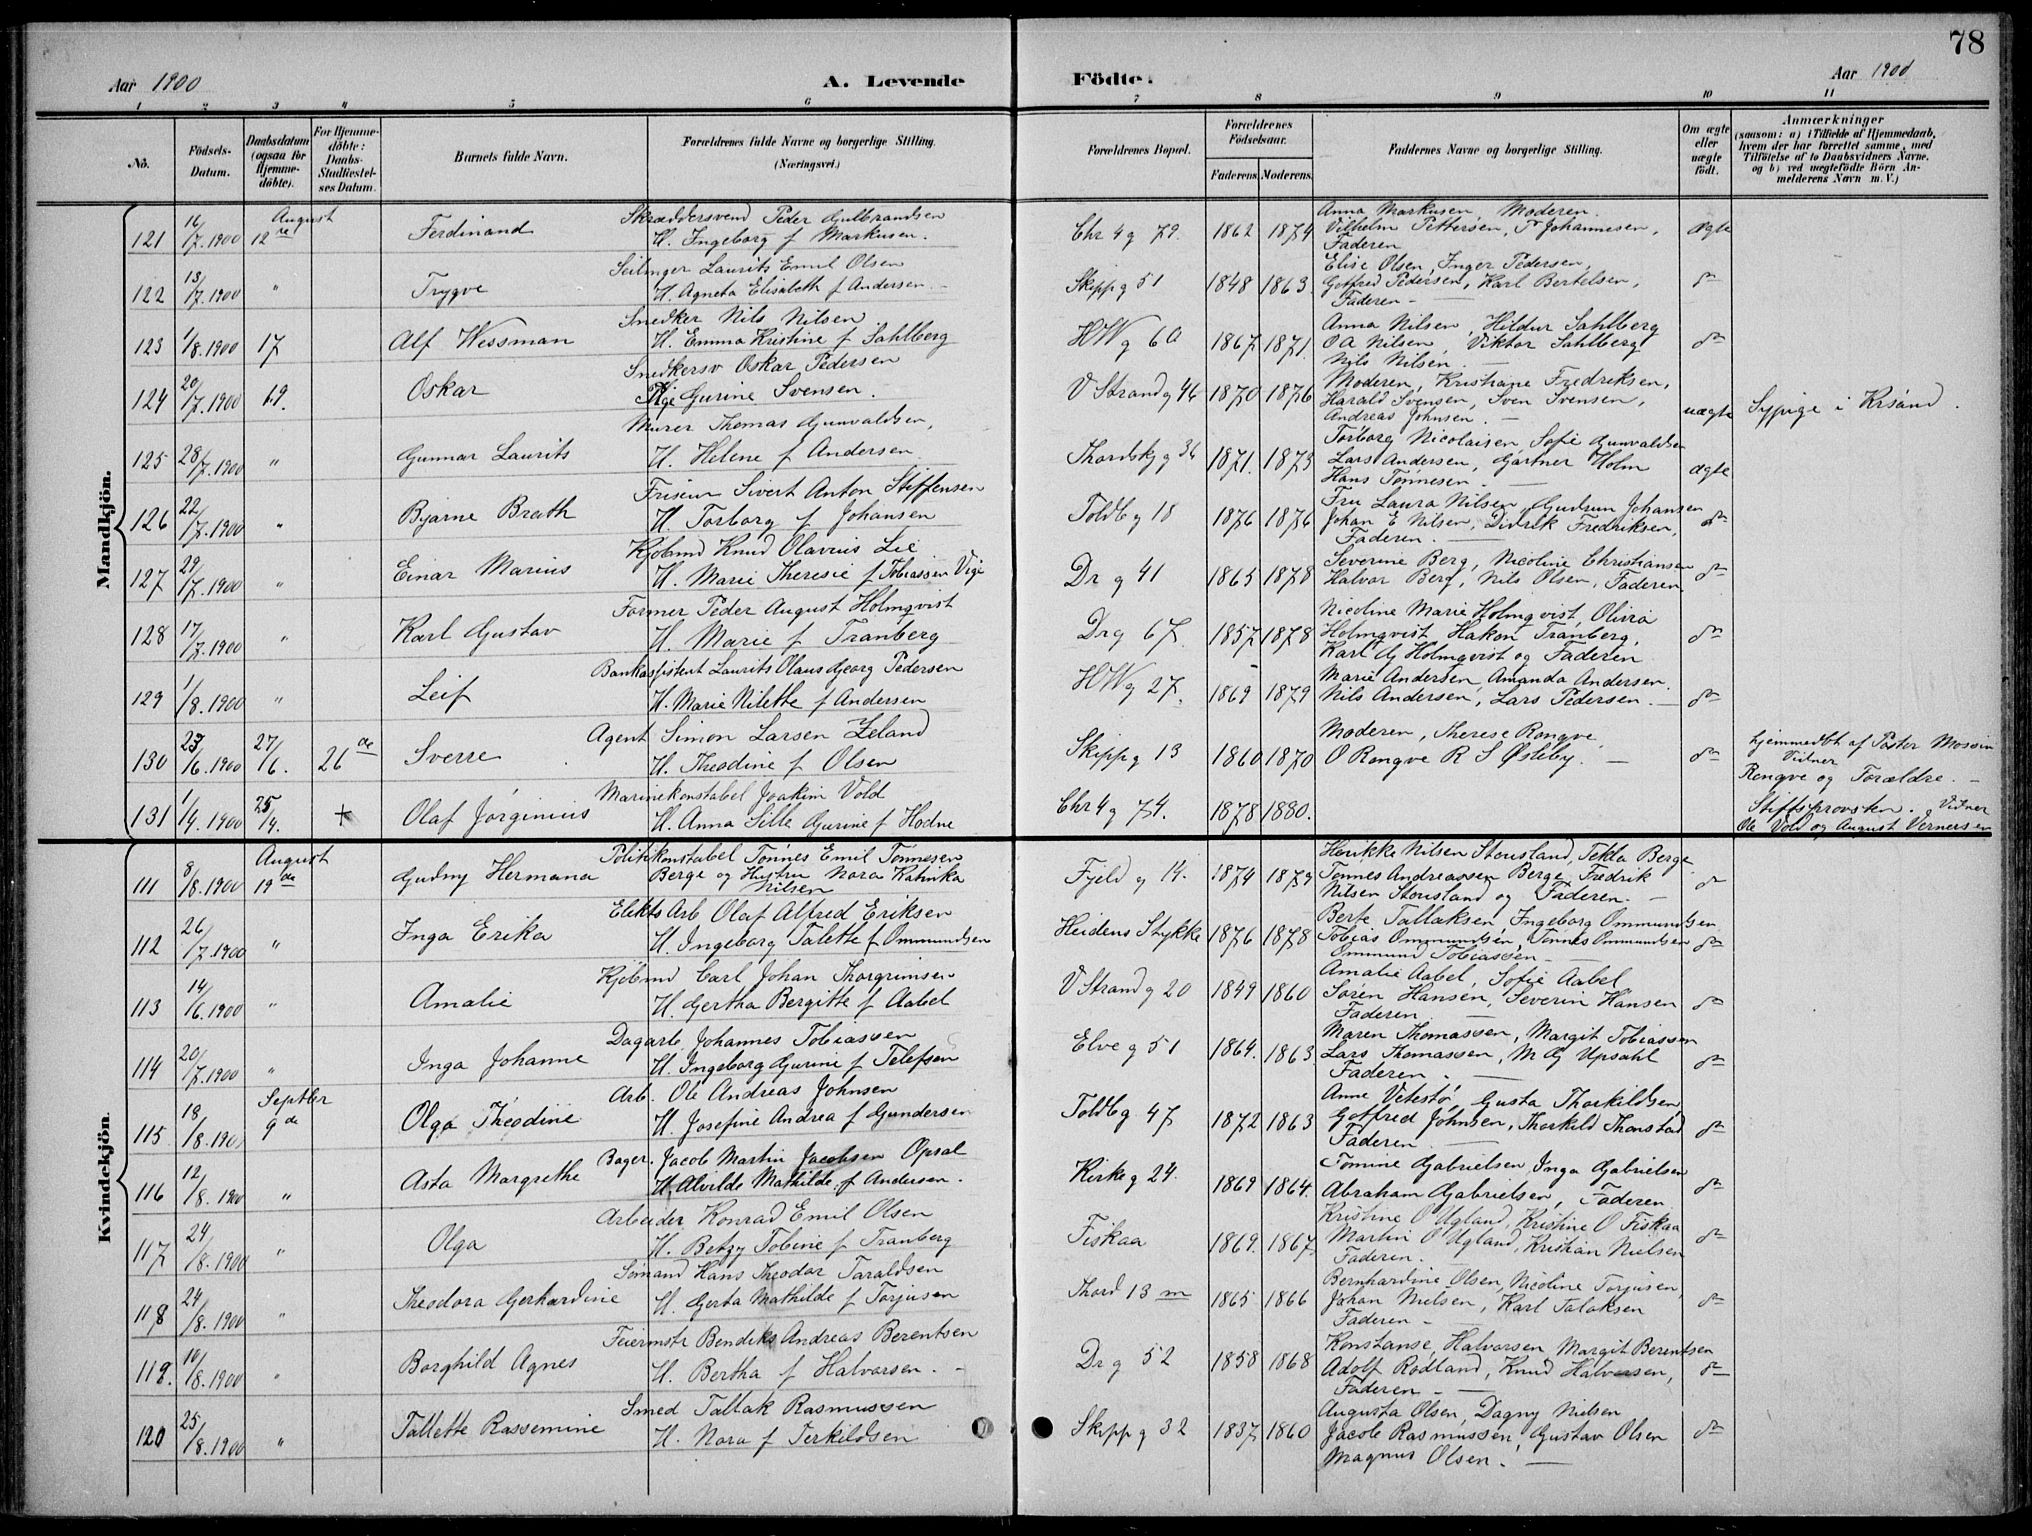 78
Aar 1900 A. Levende Födte. Aar 1900
1 2 3 4 5 6 7 8 9 10 11
No.
Födsels-Datum.
Daabsdatum (ogsaa for Hjemme-döbte).
For Hjemme-döbte: Daabs-Stadfæstel-ses Datum.
Barnets fulde Navn.
Forældrenes fulde Navne og borgerlige Stilling. (Næringsvei.)
Forældrenes Bopæl.
Forældrenes Födselsaar.
Faderens. Moderens.
Faddernes Navne og borgerlige Stilling.
Om ægte eller uægte födt.
Anmærkninger
(saasom: a) i Tilfælde af Hjemmedaab, hvem der har forrettet samme, med Tilföielse af to Daabsvidners Navne, og b) ved uægtefödte Börn Anmelderens Navn m. V.)
Mandkjön.
August
121 16/7.1900 12te Ferdinand Skræddersvend Peder Gulbrandsen
H. Ingeborg f Markusen. Chr 4 g 79. 1862 1874 Anna Markusen, Moderen.
Vilhelm Pettersen, T Johannesen,
Faderen ægte
122 13/7.1900 " Trygve Seilmager Laurits Emil Olsen
H. Agneta Elisabeth f Andersen. Skippg 51 1848 1863. Elise Olsen, Inger Pedersen,
Gotfred Pedersen, Karl Bertelsen,
Faderen do
123 1/8.1900 17 Alf Wessman Snedker Nils Nilsen
H. Emma Kristine f Sahlberg HW g 60 1867 1871. Anna Nilsen, Hildur Sahlberg
O A Nilsen Viktor Sahlberg
Nils Nilsen. do
124 20/7.1900 19. Oskar Snedkersv Oskar Pedersen
Pige Gurine Svensen. V Strand g 46 1870 1876 Moderen, Kristiane Fredriksen,
Harald Svensen, Sven Svensen,
Andreas Johnsen. uægte Sypige i Krsand.
125 28/7.1900 " Gunnar Laurits Murer Thomas Gunvaldsen,
H. Helene f Andersen Thordskj g 36 1871. 1873 Torborg Nicolaisen Sofie Gunvaldsen
Lars Andersen, Gartner Holm
Hans Tønnesen. ægte
126 22/7.1900 " Bjarne Brath Friseur Sivert Anton Stiffensen
H. Torborg f Johansen Toldb g 18 1876 1876 Fru Laura Nilsen, Gudrun Johansen
Johan E Nilsen, Didrik Fredriksen,
Faderen. do
127 29/7.1900 " Einar Marius Kjöbmd Knud Olavius Lie
H. Marie Theresie f Tobiassen Vige Dr g 41 1865 1878 Severine Berg, Nicoline Christiansen
Halvor Berg, Nils Olsen, Faderen do
128 17/7.1900 " Karl Gustav Former Peder August Holmqvist
H. Marie f Tranberg Dr g 67. 1857 1878 Nicoline Marie Holmqvist, Olivia
Holmqvist Hakon Tranberg,
Karl Aj Holmqvist og Faderen do
129 1/8.1900 " Leif Bankassistent Laurits Olaus Georg Pedersen
H. Marie Nilette f Andersen HW g 27. 1869 1879 Marie Andersen, Amanda Andersen.
Nils Andersen, Lars Pedersen. do
130 23/6.1900 27/6. 26de Sverre Agent Simon Larsen Zeland
H. Theodine f Olsen Skipp g 13 1860 1870 Moderen, Therese Rongve,
O Rongve R S Østeby. do hjemmedøbt af Pastor Mossin
Vidner
Rongve og Forældre.
131 1/4.1900 25/4. + Olaf Jörginius Marinekonstabel Joakim Vold
H. Anna Sille Gurine f Hodne Chr 4 g 74. 1878 1880. Stiftsprovsten. Vidner
Ole Vold og August Vernersen
Kvindekjön.
August
111 8/8.1900 19de Gudny Hermana Politikonstabel Tønnes Emil Tønnesen
Berge og Hustru Nora Kathrika
Nilsen Fjeld g 14. 1874 1879 Henrikke Nilsen Stousland, Tekla Berge
Tønnes Andreassen Berge, Fredrik
Nilsen Stousland og Faderen. do
112 26/7.1900 " Inga Erika Elektr Arb Olaf Alfred Eriksen
H. Ingeborg Talette f Ommundsen Heidens Stykke 1876 1878 Berte Tallaksen, Ingeborg Ommundsen
Tobias Ommundsen, Tønnes Ommundsen
Ommund Tobiassen do
113 14/6.1900 " Amalie Kjöbmd Carl Johan Thorgrimsen
H. Gertha Bergitte f Aabel V Strand g 20 1849 1860 Amalie Aabel, Sofie Aabel
Søren Hansen, Severin Hansen
Faderen. do
114 20/7.1900 " Inga Johanne Dagarb. Johannes Tobiassen
H. Ingeborg Gurine f Telefsen Elve g 51 1864. 1863 Maren Thomassen, Margit Tobiassen
Lars Thomassen, M Aj Upsahl
Faderen. do
Septbr
115 18/8.190 9de Olga Theodine Arb. Ole Andreas Johnsen
H. Josefine Andrea f Gundersen Toldb g 47 1872 1863 Anne Vetestø, Gusta Thorkildsen,
Gotfred Johnsen, Thorkild Thorstad
Faderen. do
116 12/8.1900 " Asta Margrethe Bager. Jacob Martin Jacobsen Opsal
H. Alvilde Mathilde f Andersen. Kirke g 24. 1869 1864. Tomine Gabrielsen, Inga Gabrielsen
Abraham Gabrielsen, Faderen do
117 24/8.1900 " Olga Arbeider Konrad Emil Olsen
H. Betzy Tobine f Tranberg Fiskaa 1869. 1867. Kristine O Ugland, Kristine O Fiskaa
Martin O Ugland, Kristian Nielsen
Faderen. do
118 24/8.1900 " Theodora Gerhardine Sømand Hans Theodor Taraldsen
H. Gerta Mathilde f Torjusen Thord 13 m 1865 1866 Bernhardine Olsen, Nicoline Torjusen,
Johan Nielsen, Karl Talaksen
Faderen do
119. 10/8.1900 " Borghild Agnes Feiermstr Bendiks Andreas Berentsen
H. Bertha f Halvorsen. Dr g 52 1858 1868 Konstanse Halvorsen Margit Berentsen
Adolf Rødland, Knud Halvorsen,
Faderen do
120 25/8.1900 " Tallette Rassemine Smed Tallak Rasmussen
H. Nora f Terkildsen Skipp g 32 1837 1860 Augusta Olsen, Dagny Nielsen
Jacob Rasmussen, Gustav Olsen
Magnus Olsen. do